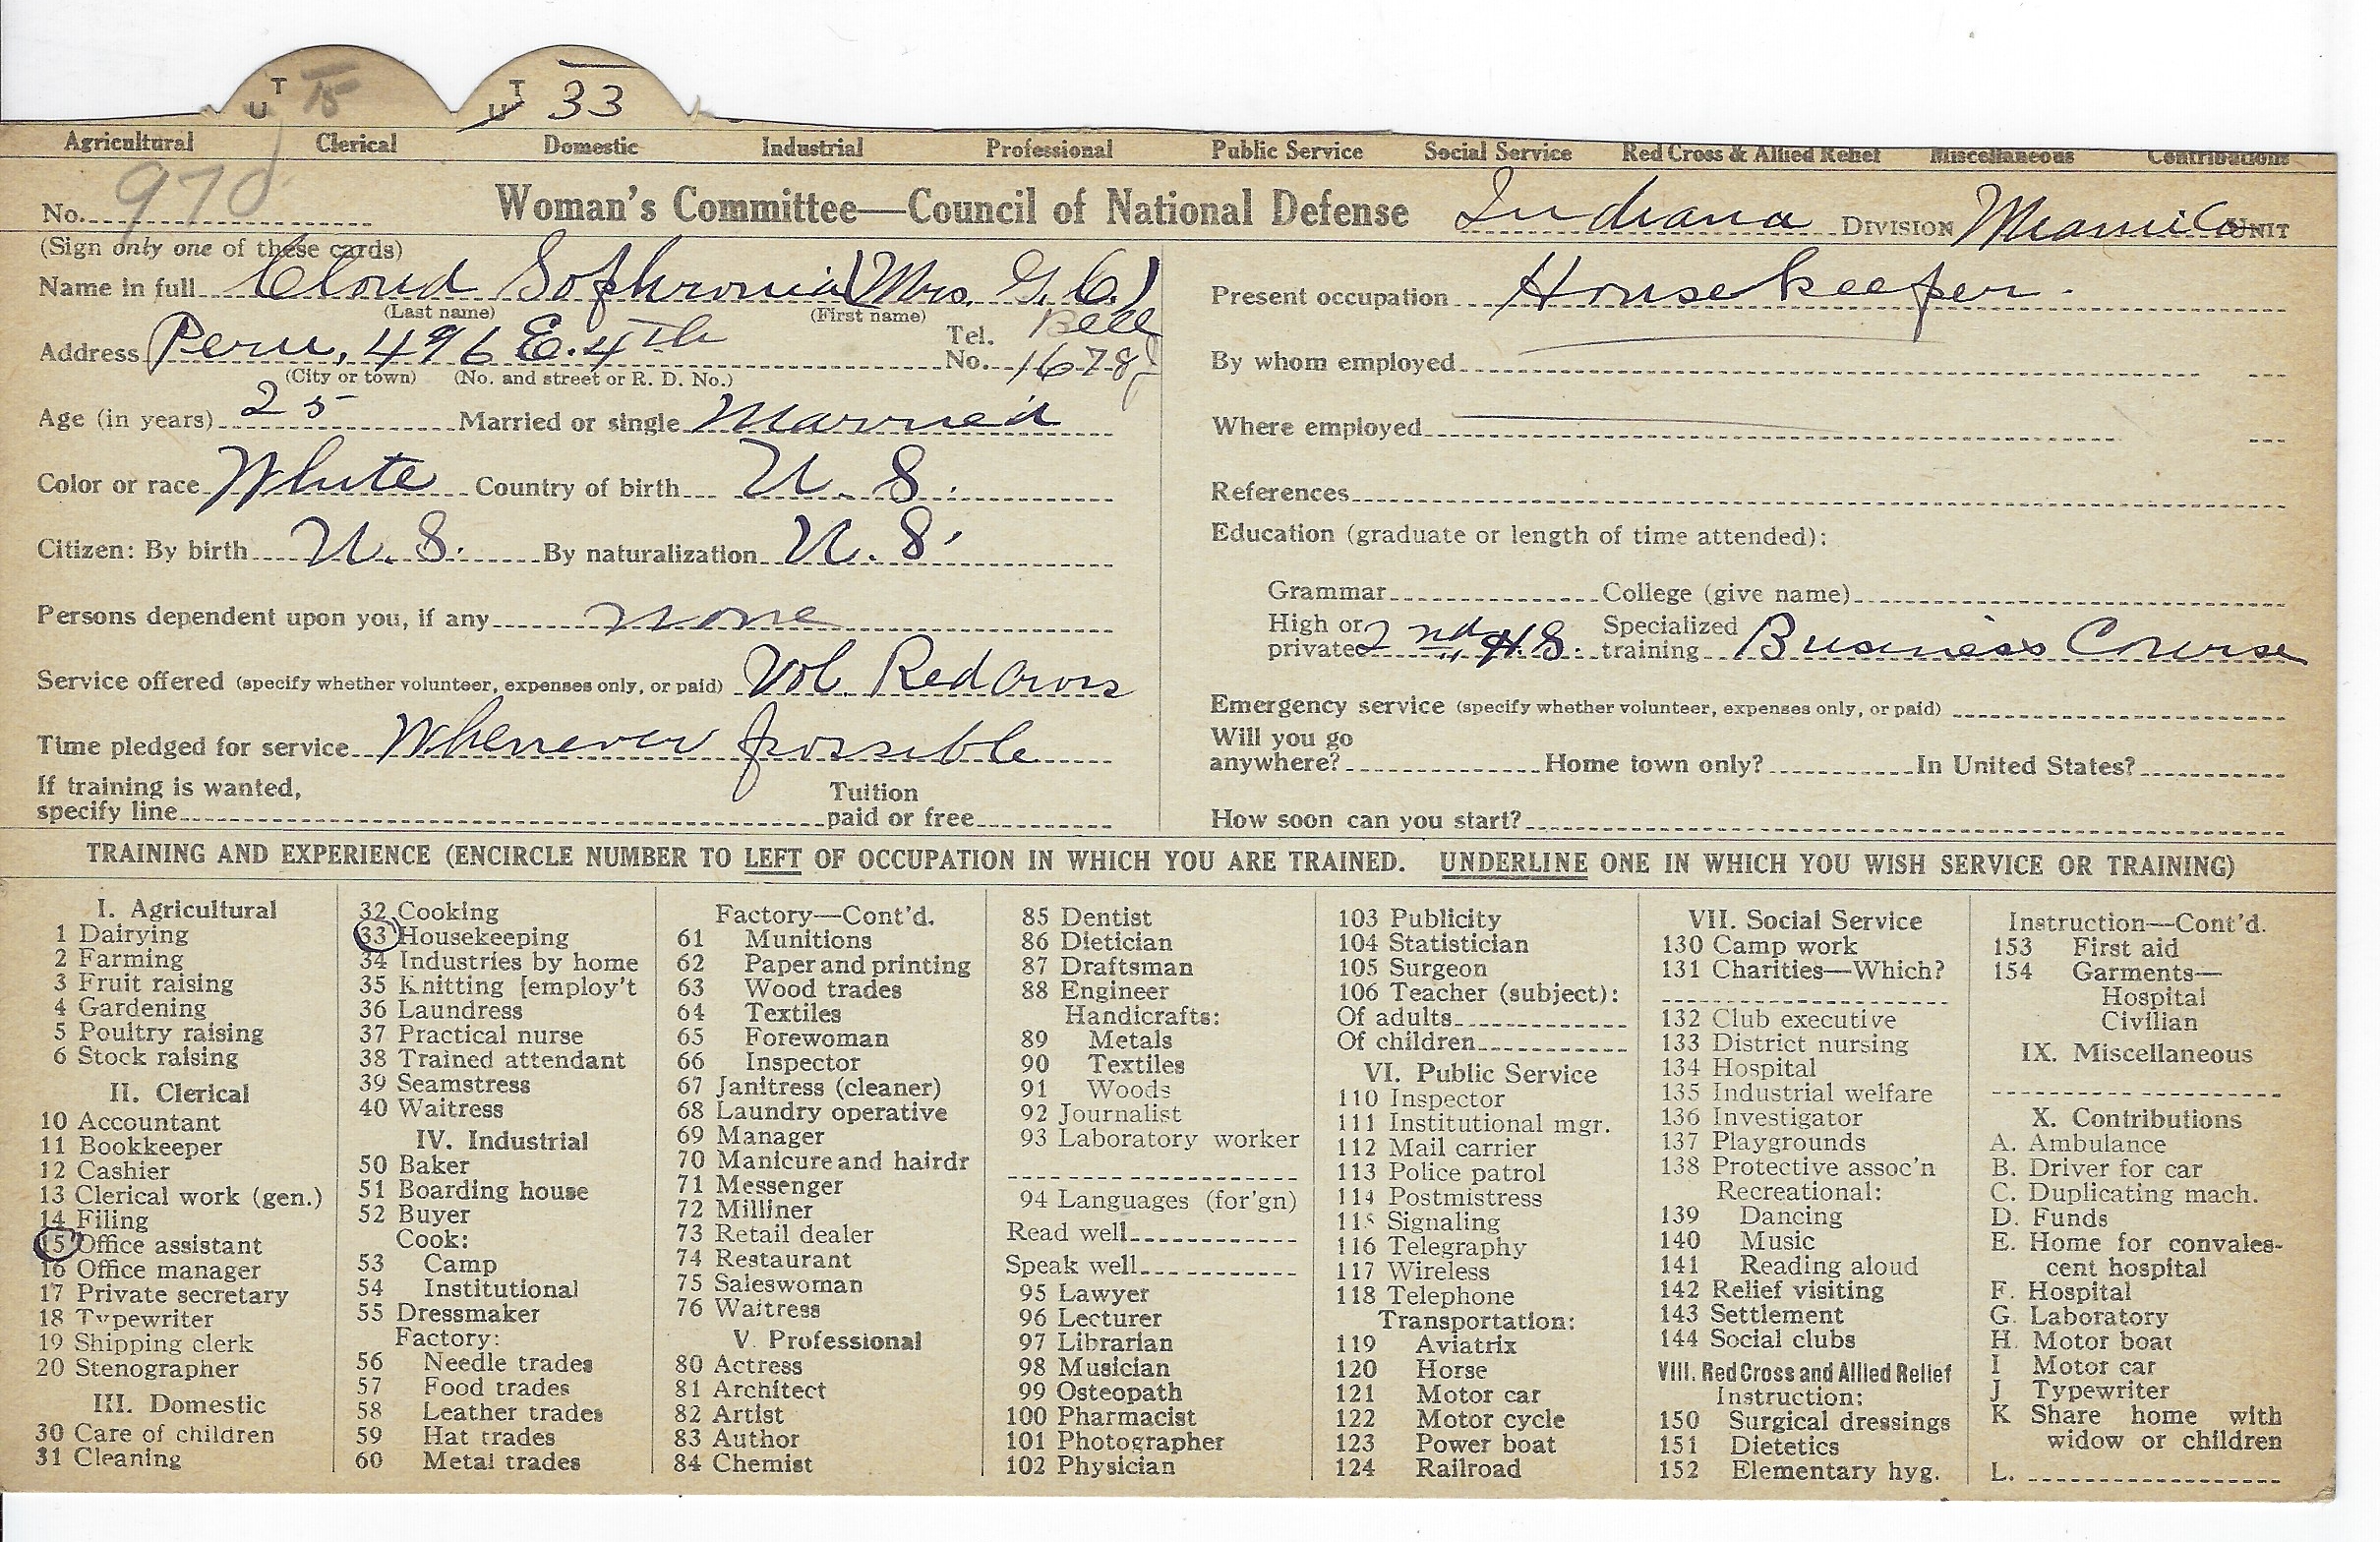 U T 15 U T 33
Agricultural Clerical Domestic Industrial Professional Public Service Social Service Red Cross & Allied Relief Miscellaneous Contributions
No. 970 Woman's Committee—Council of National Defense Indiana DIVISION Miami Co UNIT
(Sign only one of these cards)
Name in full Cloud Sophronia (Mrs. G. C.)
(Last name) (First name)
Address Peru, 496 E. 4th Tel. No. Bell 1678
(City or town) (No. and street or R. D. No.)
Age (in years) 25 Married or single Married
Color or race White Country of birth U. S.
Citizen: By birth U. S. By naturalization U. S.
Persons dependent upon you, if any none
Service offered (specify whether volunteer, expenses only, or paid) Vol. Red Cross
Time pledged for service Whenever possible
If training is wanted,
specify line Tuition paid or free
Present occupation Housekeeper.
By whom employed
Where employed
References
Education (graduate or length of time attended):
Grammar College (give name)
High or private 2nd H.S. Specialized training Business Course
Emergency service (specify whether volunteer, expenses only, or paid)
Will you go
anywhere? Home town only? In United States?
How soon can you start?
TRAINING AND EXPERIENCE (ENCIRCLE NUMBER TO LEFT OF OCCUPATION IN WHICH YOU ARE TRAINED. UNDERLINE ONE IN WHICH YOU WISH SERVICE OR TRAINING)
I. Agricultural
1 Dairying
2 Farming
3 Fruit raising
4 Gardening
5 Poultry raising
6 Stock raising
II. Clerical
10 Accountant
11 Bookkeeper
12 Cashier
13 Clerical work (gen.)
14 Filing
15 Office assistant
16 Office manager
17 Private secretary
18 Typewriter
19 Shipping clerk
20 Stenographer
III. Domestic
30 Care of children
31 Cleaning
32 Cooking
33 Housekeeping
34 Industries by home
35 Knitting [employ't
36 Laundress
37 Practical nurse
38 Trained attendant
39 Seamstress
40 Waitress
IV. Industrial
50 Baker
51 Boarding house
52 Buyer
Cook:
53 Camp
54 Institutional
55 Dressmaker
Factory:
56 Needle trades
57 Food trades
58 Leather trades
59 Hat trades
60 Metal trades
Factory—Cont'd.
61 Munitions
62 Paper and printing
63 Wood trades
64 Textiles
65 Forewoman
66 Inspector
67 Janitress (cleaner)
68 Laundry operative
69 Manager
70 Manicure and hairdr
71 Messenger
72 Milliner
73 Retail dealer
74 Restaurant
75 Saleswoman
76 Waitress
V. Professional
80 Actress
81 Architect
82 Artist
83 Author
84 Chemist
85 Dentist
86 Dietician
87 Draftsman
88 Engineer
Handicrafts:
89 Metals
90 Textiles
91 Woods
92 Journalist
93 Laboratory worker
94 Languages (for'gn)
Read well
Speak well
95 Lawyer
96 Lecturer
97 Librarian
98 Musician
99 Osteopath
100 Pharmacist
101 Photographer
102 Physician
103 Publicity
104 Statistician
105 Surgeon
106 Teacher (subject):
Of adults
Of children
VI. Public Service
110 Inspector
111 Institutional mgr.
112 Mail carrier
113 Police patrol
114 Postmistress
115 Signaling
116 Telegraphy
117 Wireless
118 Telephone
Transportation:
119 Aviatrix
120 Horse
121 Motor car
122 Motor cycle
123 Power boat
124 Railroad
VII. Social Service
130 Camp work
131 Charities—Which?
132 Club executive
133 District nursing
134 Hospital
135 Industrial welfare
136 Investigator
137 Playgrounds
138 Protective assoc'n
Recreational:
139 Dancing
140 Music
141 Reading aloud
142 Relief visiting
143 Settlement
144 Social clubs
VIII. Red Cross and Allied Relief
Instruction:
150 Surgical dressings
151 Dietetics
152 Elementary hyg.
Instruction—Cont'd.
153 First aid
154 Garments—
Hospital
Civilian
IX. Miscellaneous
X. Contributions
A. Ambulance
B. Driver for car
C. Duplicating mach.
D. Funds
E. Home for convales-
cent hospital
F. Hospital
G. Laboratory
H. Motor boat
I Motor car
J Typewriter
K Share home with
widow or children
L.